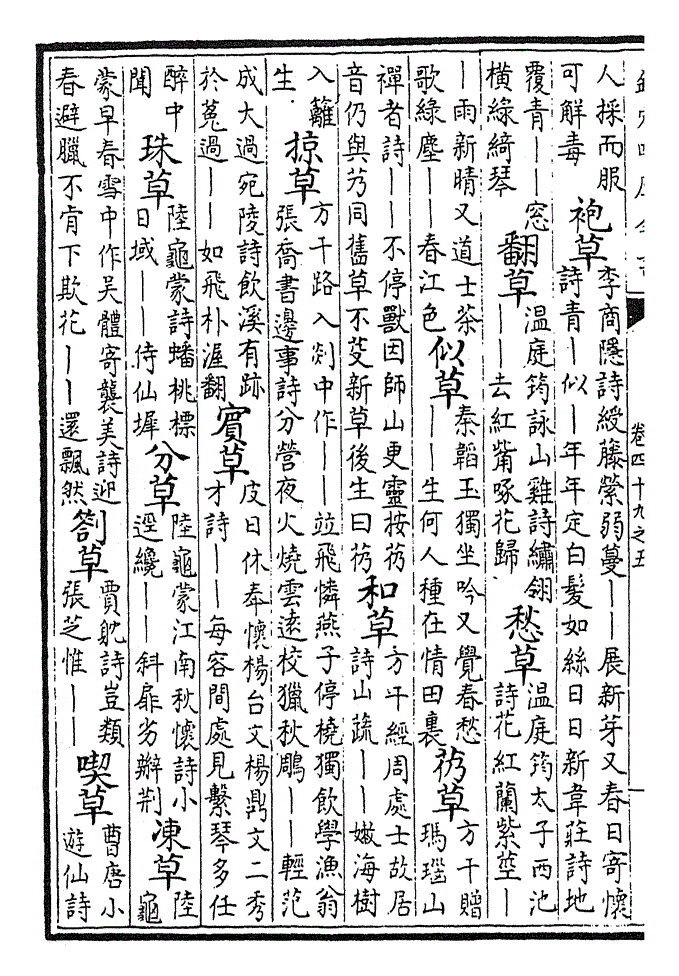 卷四十九之五
人採而服
可解毒
袍草
李商隱詩綬藤縈弱蔓——展新芽又春日寄懷
詩青—似—年年定白髮如絲日日新韋莊詩地
覆青——窓
橫綠綺琴
翻草
溫庭筠詠山雞詩繡翎
——去紅觜啄花歸
愁草
溫庭筠太子西池
詩花紅蘭紫莖—
—雨新晴又道士茶
歌綠塵——春江色
似草
秦韜玉獨坐吟又覺春愁
——生何人種在情田裏
芿草
方干贈
瑪瑙山
禪者詩——不停獸因師山更靈按芿
音仍與艿同舊草不芟新草後生曰芿
和草
方干經周處士故居
詩山蔬——嫩海樹
入籬
生
掠草
方干路入剡中作——竝飛憐燕子停橈獨飲學漁翁
張喬書邊事詩分營夜火燒雲遠校獵秋鵰——輕范
成大過宛陵詩飲溪有跡
於菟過——如飛朴渥翻
賓草
皮日休奉懷楊台文楊鼎文二秀
才詩——每容閒處見繫琴多任
醉中
聞
珠草
陸龜蒙詩蟠桃標
日域——侍仙墀
分草
陸龜蒙江南秋懷詩小
逕纔——斜扉劣辦荆
凍草
陸
龜
蒙早春雪中作吳體寄襲美詩迎
春避臘不肯下欺花——還飄然
劄草
賈躭詩豈類
張芝惟——
喫草
曹唐小
遊仙詩